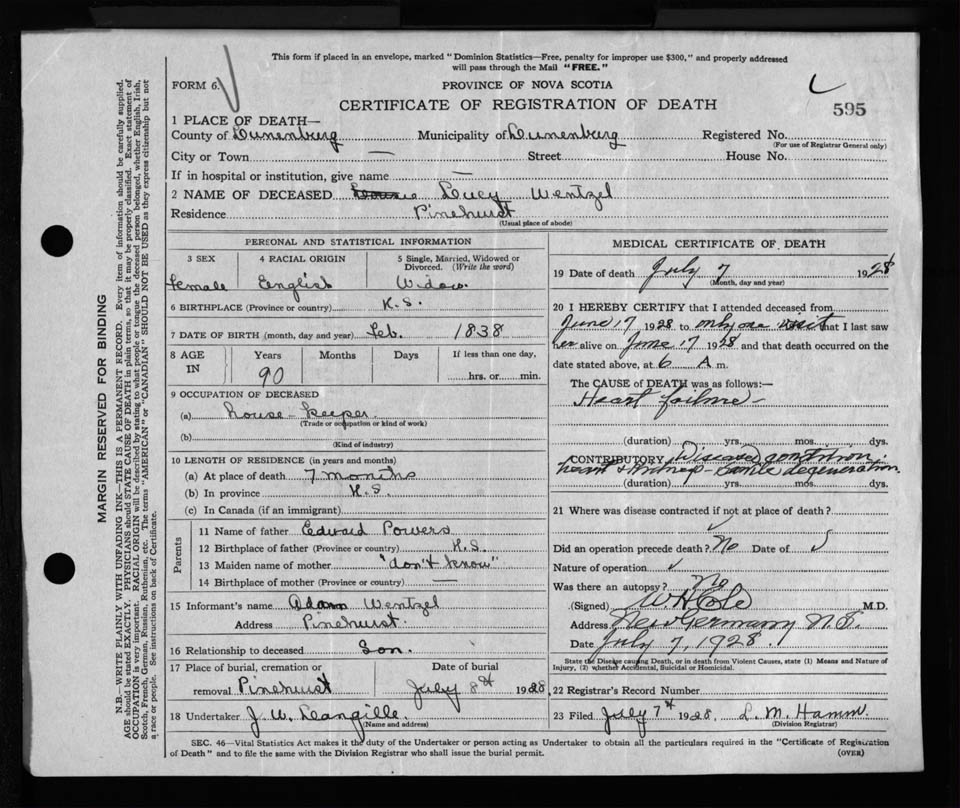 This form if placed in an envelope, marked "Dominion Statistics—Free, penalty for improper use $300," and properly addressed
will pass through the Mail "FREE."
FORM 6.
PROVINCE OF NOVA SCOTIA
CERTIFICATE OF REGISTRATION OF DEATH
595
1 PLACE OF DEATH—
County of Lunenburg Municipality of Lunenburg Registered No.
(For use of Registrar General only)
City or Town — Street House No.
If in hospital or institution, give name —
2 NAME OF DECEASED Lucy Wentzel
Residence Pinehurst
(Usual place of abode)
PERSONAL AND STATISTICAL INFORMATION
3 SEX
4 RACIAL ORIGIN
5 Single, Married, Widowed or
Divorced. (Write the word)
Female English Widow.
6 BIRTHPLACE (Province or country) N.S.
7 DATE OF BIRTH (month, day and year) Feb. 1838
8 AGE
IN
Years Months Days
If less than one day,
hrs. or min.
90
9 OCCUPATION OF DECEASED
(a) house-keeper
(Trade or occupation or kind of work)
(b)
(Kind of industry)
10 LENGTH OF RESIDENCE (in years and months)
(a) At place of death 7 months
(b) In province N.S.
(c) In Canada (if an immigrant)
Parents
11 Name of father Edward Powers
12 Birthplace of father (Province or country) N.S.
13 Maiden name of mother "don't know"
14 Birthplace of mother (Province or country) —
15 Informant's name Adam Wentzel
Address Pinehurst
16 Relationship to deceased Son.
17 Place of burial, cremation or Date of burial
removal Pinehurst July 8th 1928
18 Undertaker J. W. Langille
(Name and address)
MEDICAL CERTIFICATE OF DEATH
19 Date of death July 7 1928
(Month, day and year)
20 I HEREBY CERTIFY that I attended deceased from
June 17 1928 to only one visit that I last saw
her alive on June 17 1928 and that death occurred on the
date stated above, at 6 A m.
The CAUSE of DEATH was as follows:—
Heart failure—
(duration) yrs. mos. dys.
CONTRIBUTORY Diseased condition
heart & kidneys— degeneration
(duration) yrs. mos. dys.
21 Where was disease contracted if not at place of death?
Did an operation precede death? No Date of
Nature of operation
Was there an autopsy? No
(Signed) W H Cole M.D.
Address New Germany N.S.
Date July 7, 1928.
State the Disease causing Death, or in death from Violent Causes, state (1) Means and Nature of
Injury, (2) whether Accidental, Suicidal or Homicidal.
22 Registrar's Record Number
23 Filed July 7th 1928. L. M. Hamm.
(Division Registrar)
SEC. 46—Vital Statistics Act makes it the duty of the Undertaker or person acting as Undertaker to obtain all the particulars required in the "Certificate of Registration
of Death" and to file the same with the Division Registrar who shall issue the burial permit.
(OVER)
MARGIN RESERVED FOR BINDING
N.B.—WRITE PLAINLY WITH UNFADING INK—THIS IS A PERMANENT RECORD. Every item of information should be carefully supplied.
AGE should be stated EXACTLY. PHYSICIANS should STATE CAUSE OF DEATH in plain terms, so that it may be properly classified. Exact statement of
OCCUPATION is very important. RACIAL ORIGIN will be described by stating to what people or tongue the deceased person belonged, whether English, Irish,
Scotch, French, German, Russian, Ruthenian, etc. The terms "AMERICAN" or "CANADIAN" SHOULD NOT BE USED as they express citizenship but not
a race or people. See instructions on back of Certificate.